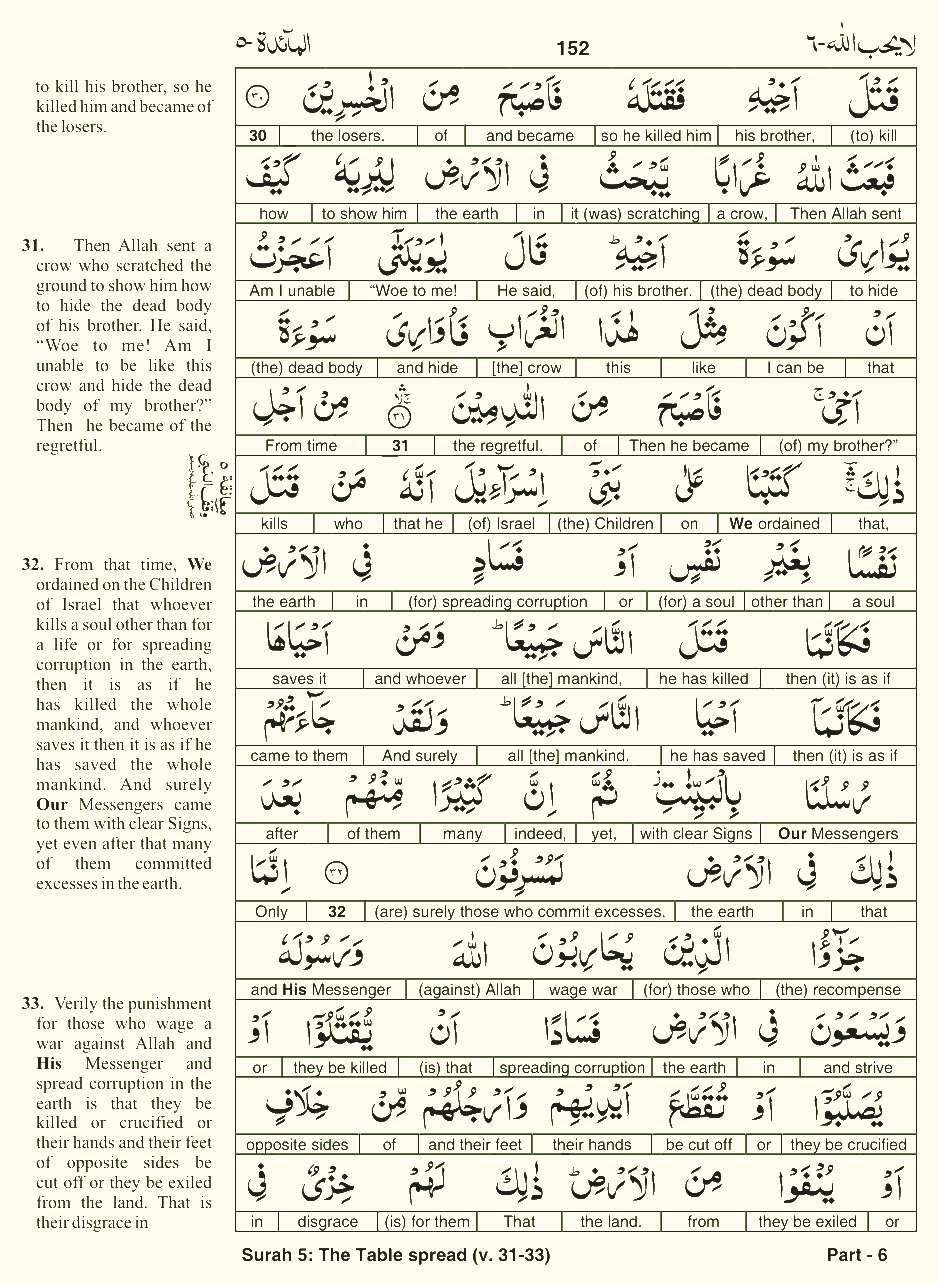 المآئدة-٥ 152 لا يحب الله-٦
to kill his brother, so he
killed him and became of
the losers.
31. Then Allah sent a
crow who scratched the
ground to show him how
to hide the dead body
of his brother. He said,
“Woe to me! Am I
unable to be like this
crow and hide the dead
body of my brother?”
Then he became of the
regretful.
32. From that time, We
ordained on the Children
of Israel that whoever
kills a soul other than for
a life or for spreading
corruption in the earth,
then it is as if he
has killed the whole
mankind, and whoever
saves it then it is as if he
has saved the whole
mankind. And surely
Our Messengers came
to them with clear Signs,
yet even after that many
of them committed
excesses in the earth.
33. Verily the punishment
for those who wage a
war against Allah and
His Messenger and
spread corruption in the
earth is that they be
killed or crucified or
their hands and their feet
of opposite sides be
cut off or they be exiled
from the land. That is
their disgrace in
قَتْلَ اَخِيْهِ فَقَتَلَهٗ فَاَصْبَحَ مِنَ الْخٰسِرِيْنَ ٣٠
(to) kill his brother, so he killed him and became of the losers. 30
فَبَعَثَ اللّٰهُ غُرَابًا يَّبْحَثُ فِي الْاَرْضِ لِيُرِيَهٗ كَيْفَ
Then Allah sent a crow, it (was) scratching in the earth to show him how
يُوَارِيْ سَوْءَةَ اَخِيْهِ ؕ قَالَ يٰوَيْلَتٰۤى اَعَجَزْتُ
to hide (the) dead body (of) his brother. He said, “Woe to me! Am I unable
اَنْ اَكُوْنَ مِثْلَ هٰذَا الْغُرَابِ فَاُوَارِيَ سَوْءَةَ
that I can be like this [the] crow and hide (the) dead body
اَخِيْ ۚ فَاَصْبَحَ مِنَ النّٰدِمِيْنَ ٣١ مِنْ اَجْلِ
(of) my brother?” Then he became of the regretful. 31 From time
ذٰلِكَ كَتَبْنَا عَلٰى بَنِيْۤ اِسْرَآءِيْلَ اَنَّهٗ مَنْ قَتَلَ
that, We ordained on (the) Children (of) Israel that he who kills
نَفْسًۢا بِغَيْرِ نَفْسٍ اَوْ فَسَادٍ فِي الْاَرْضِ
a soul other than (for) a soul or (for) spreading corruption in the earth
فَكَاَنَّمَا قَتَلَ النَّاسَ جَمِيْعًا ؕ وَمَنْ اَحْيَاهَا
then (it) is as if he has killed all [the] mankind, and whoever saves it
فَكَاَنَّمَاۤ اَحْيَا النَّاسَ جَمِيْعًا ؕ وَلَقَدْ جَآءَتْهُمْ
then (it) is as if he has saved all [the] mankind. And surely came to them
رُسُلُنَا بِالْبَيِّنٰتِ ؗ ثُمَّ اِنَّ كَثِيْرًا مِّنْهُمْ بَعْدَ
Our Messengers with clear Signs yet, indeed, many of them after
ذٰلِكَ فِي الْاَرْضِ لَمُسْرِفُوْنَ ٣٢ اِنَّمَا
that in the earth (are) surely those who commit excesses. 32 Only
جَزٰٓؤُا الَّذِيْنَ يُحَارِبُوْنَ اللّٰهَ وَرَسُوْلَهٗ
(the) recompense (for) those who wage war (against) Allah and His Messenger
وَيَسْعَوْنَ فِي الْاَرْضِ فَسَادًا اَنْ يُّقَتَّلُوْۤا اَوْ
and strive in the earth spreading corruption (is) that they be killed or
يُصَلَّبُوْۤا اَوْ تُقَطَّعَ اَيْدِيْهِمْ وَاَرْجُلُهُمْ مِّنْ خِلَافٍ
they be crucified or be cut off their hands and their feet of opposite sides
اَوْ يُنْفَوْا مِنَ الْاَرْضِ ؕ ذٰلِكَ لَهُمْ خِزْيٌ فِي
or they be exiled from the land. That (is) for them disgrace in
Surah 5: The Table spread (v. 31-33) Part - 6